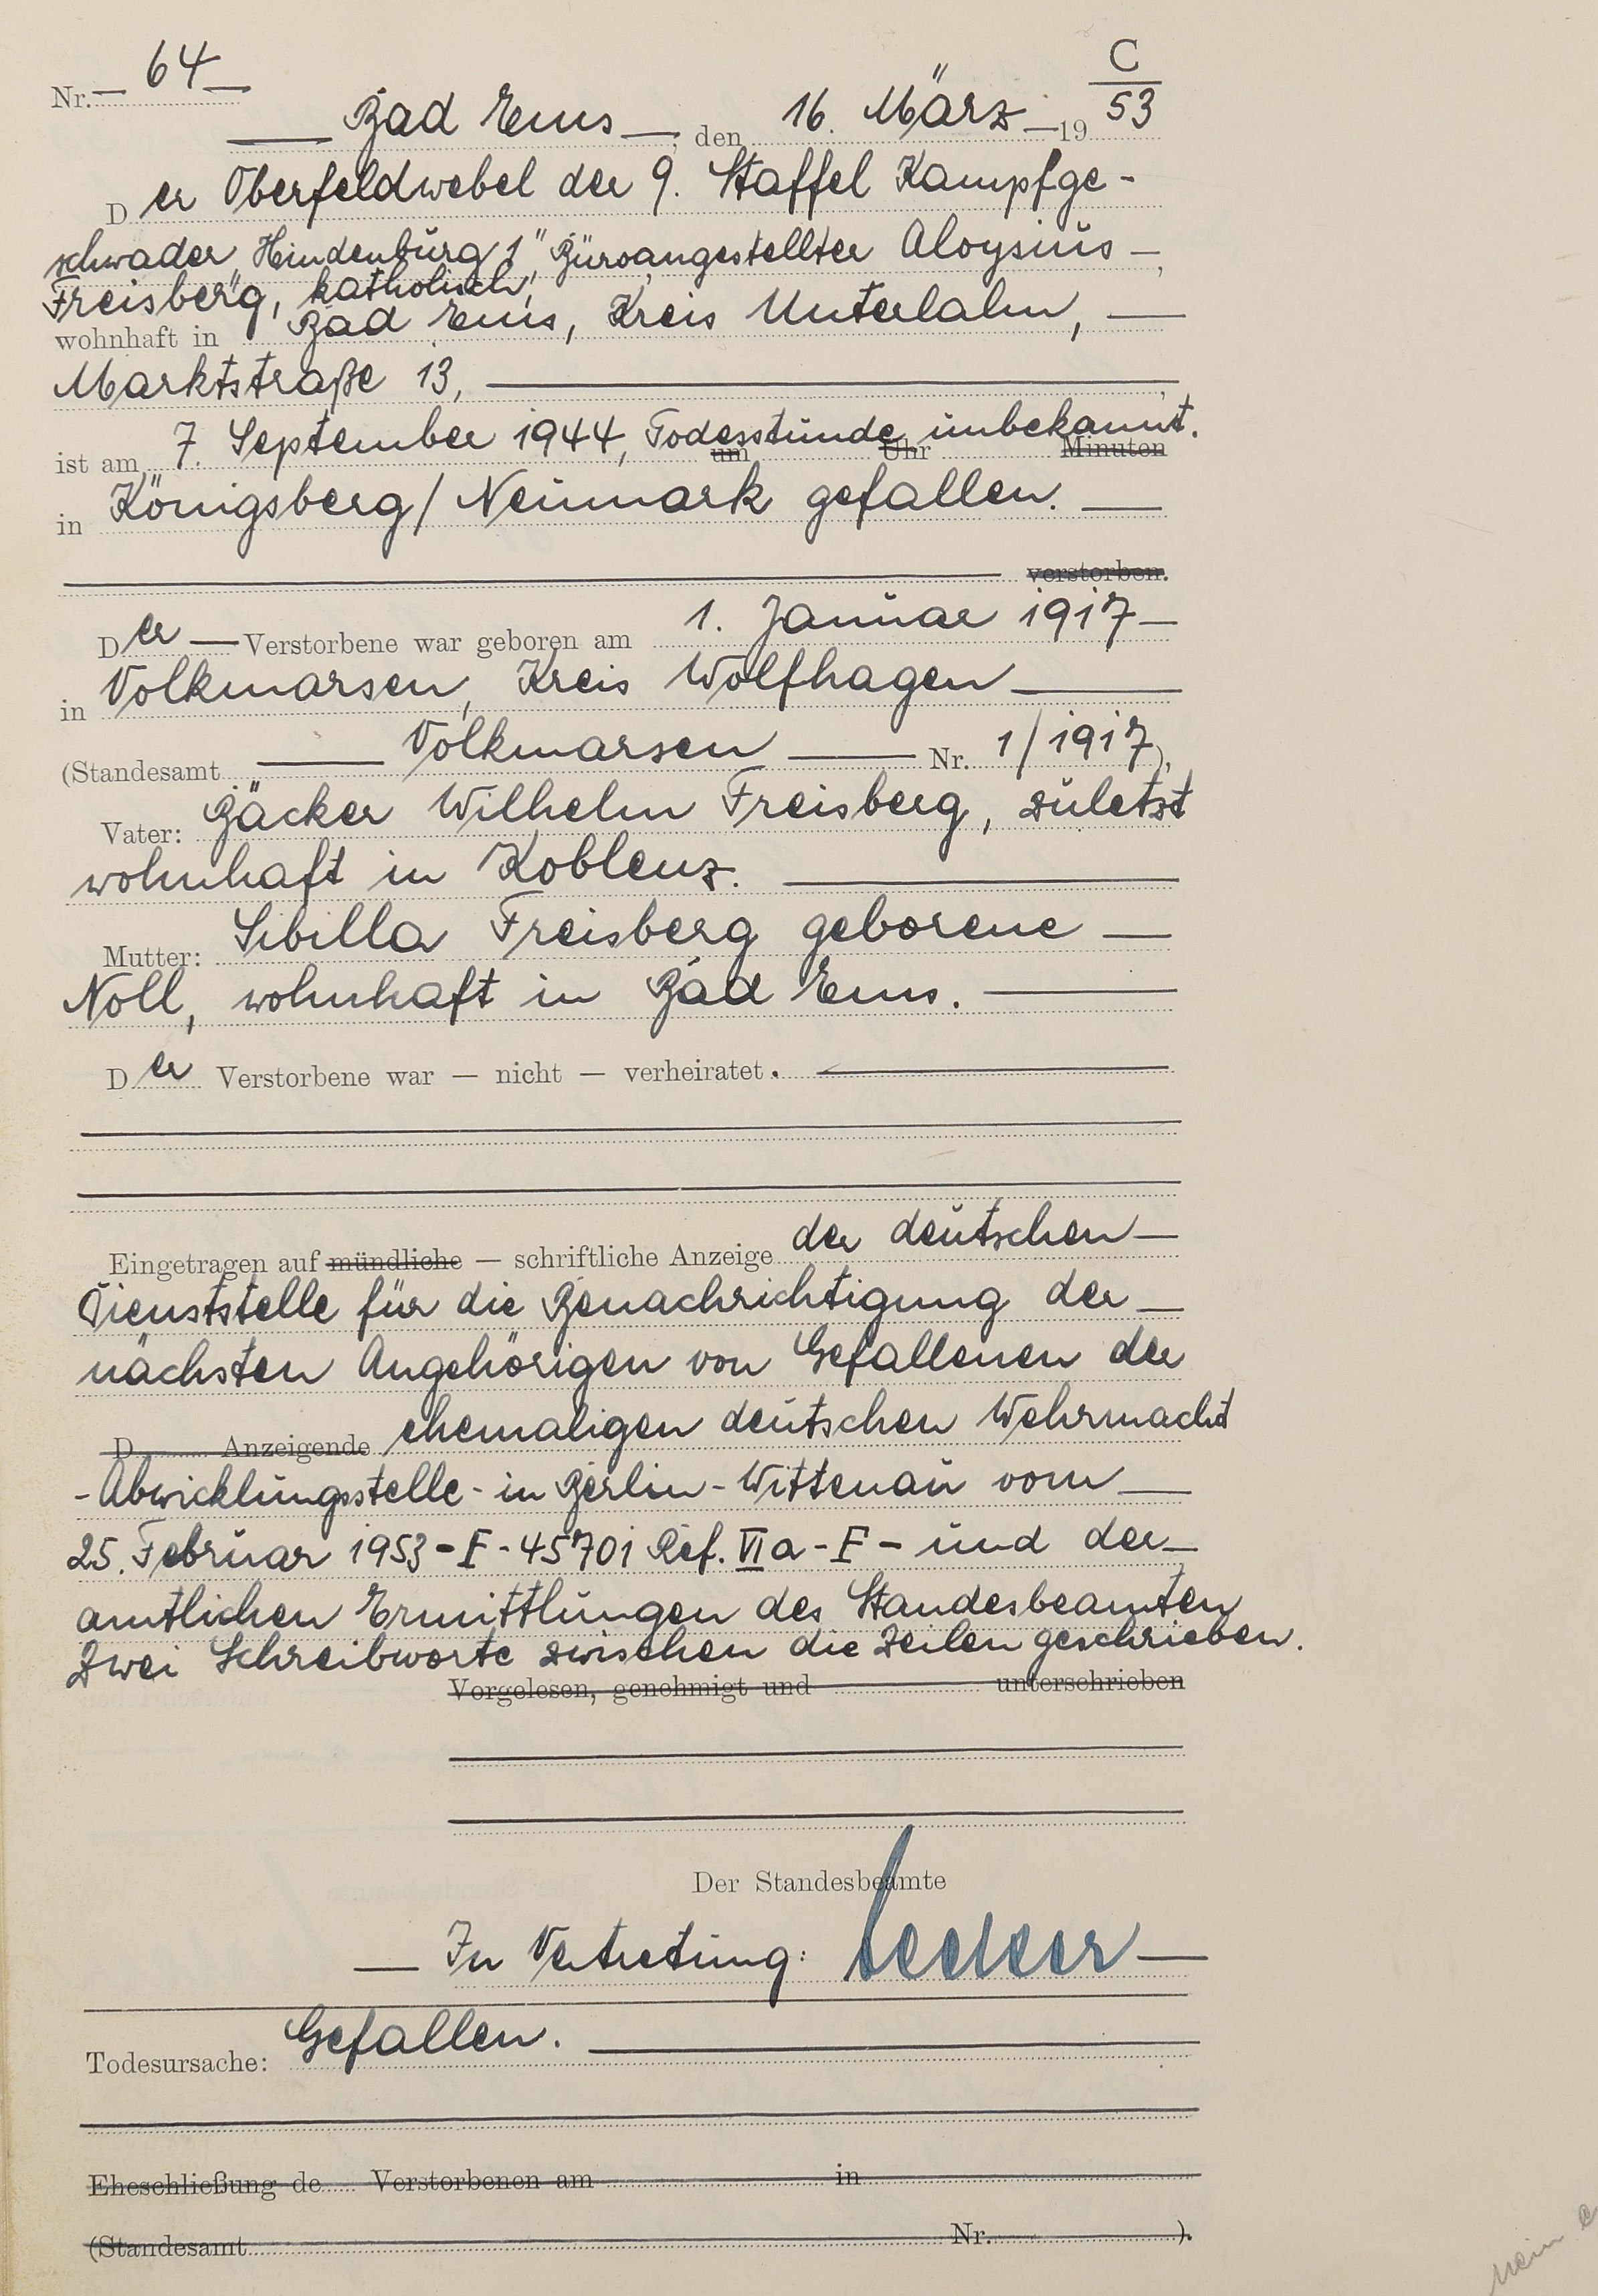 C
Nr. — 64 —
— Bad Ems —, den 16. März — 19 53
Der Oberfeldwebel der 9. Staffel Kampfge-
schwader „Hindenburg 1", Büroangestellter Aloysius —
Freisberg, katholisch,
wohnhaft in Bad Ems, Kreis Unterlahn, —
Marktstraße 13, —
ist am 7. September 1944, Todesstunde unbekannt.
um Uhr Minuten
in Königsberg/Neumark gefallen. —
verstorben.
Der — Verstorbene war geboren am 1. Januar 1917 —
in Volkmarsen, Kreis Wolfhagen —
(Standesamt — Volkmarsen — Nr. 1/1917),
Vater: Bäcker Wilhelm Freisberg, zuletzt
wohnhaft in Koblenz. —
Mutter: Sibilla Freisberg geborene —
Noll, wohnhaft in Bad Ems. —
Der Verstorbene war — nicht — verheiratet. —
Eingetragen auf mündliche — schriftliche Anzeige der deutschen —
Dienststelle für die Benachrichtigung der —
nächsten Angehörigen von Gefallenen der
D Anzeigende ehemaligen deutschen Wehrmacht
- Abwicklungsstelle - in Berlin-Wittenau vom —
25. Februar 1953 - F - 45701 Ref. VI a - F - und der —
amtlichen Ermittlungen des Standesbeamten
Zwei Schreibworte zwischen die Zeilen geschrieben.
Vorgelesen, genehmigt und unterschrieben
Der Standesbeamte
— In Vertretung: —
Todesursache: Gefallen. —
Eheschließung de Verstorbenen am in
(Standesamt Nr. ).